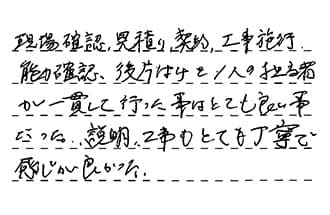 現場確認、見積り、契約、工事施行、
能力確認、後片付けと1人の担当者
が一貫して行った事はとても良い事
だった。説明、工事もとても丁寧で
感じが良かった。